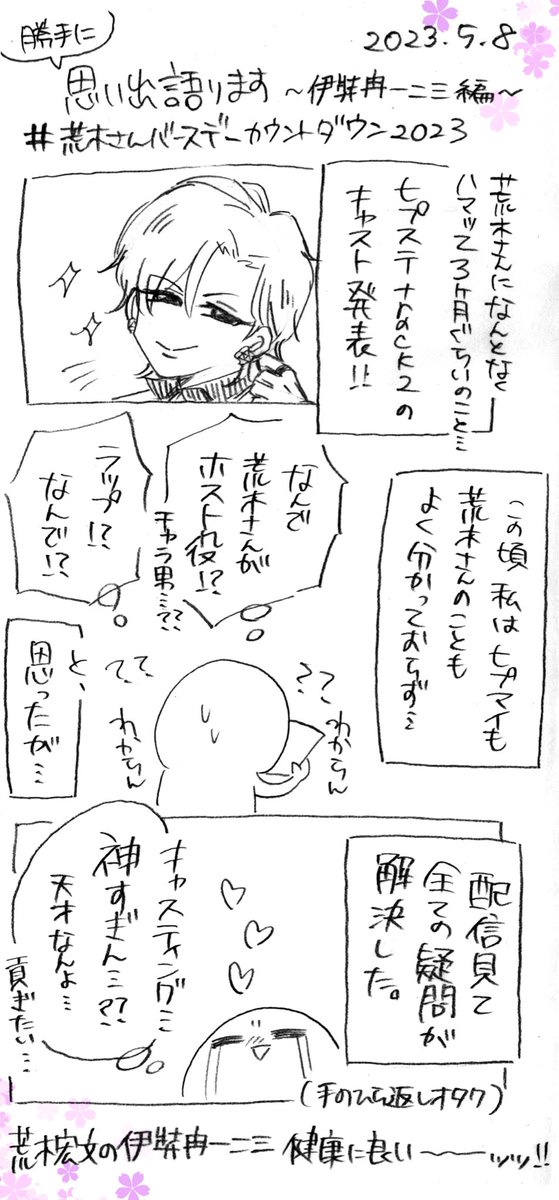 勝手に
2023.5.8
思い出語ります ～伊弉冉一二三編～
#荒木さんバースデーカウントダウン2023
荒木さんになんとなく
ハマッて3ヶ月ぐらいのこと…
ヒプステtrack2の
キャスト発表!!
この頃 私はヒプマイも
荒木さんのことも
よく分かっておらず…
なんで
荒木さんが
ホスト役!?
チャラ男…??
ラップ!?
なんで!?
??
わからん
??
わからん
と、
思ったが…
配信見て
全ての疑問が
解決した。
キャスティング…
神すぎん…??
天才なんよ…
貢ぎたい…
(手のひら返しオタク)
荒木宏文の伊弉冉一二三 健康に良い〜〜〜ッッ!!